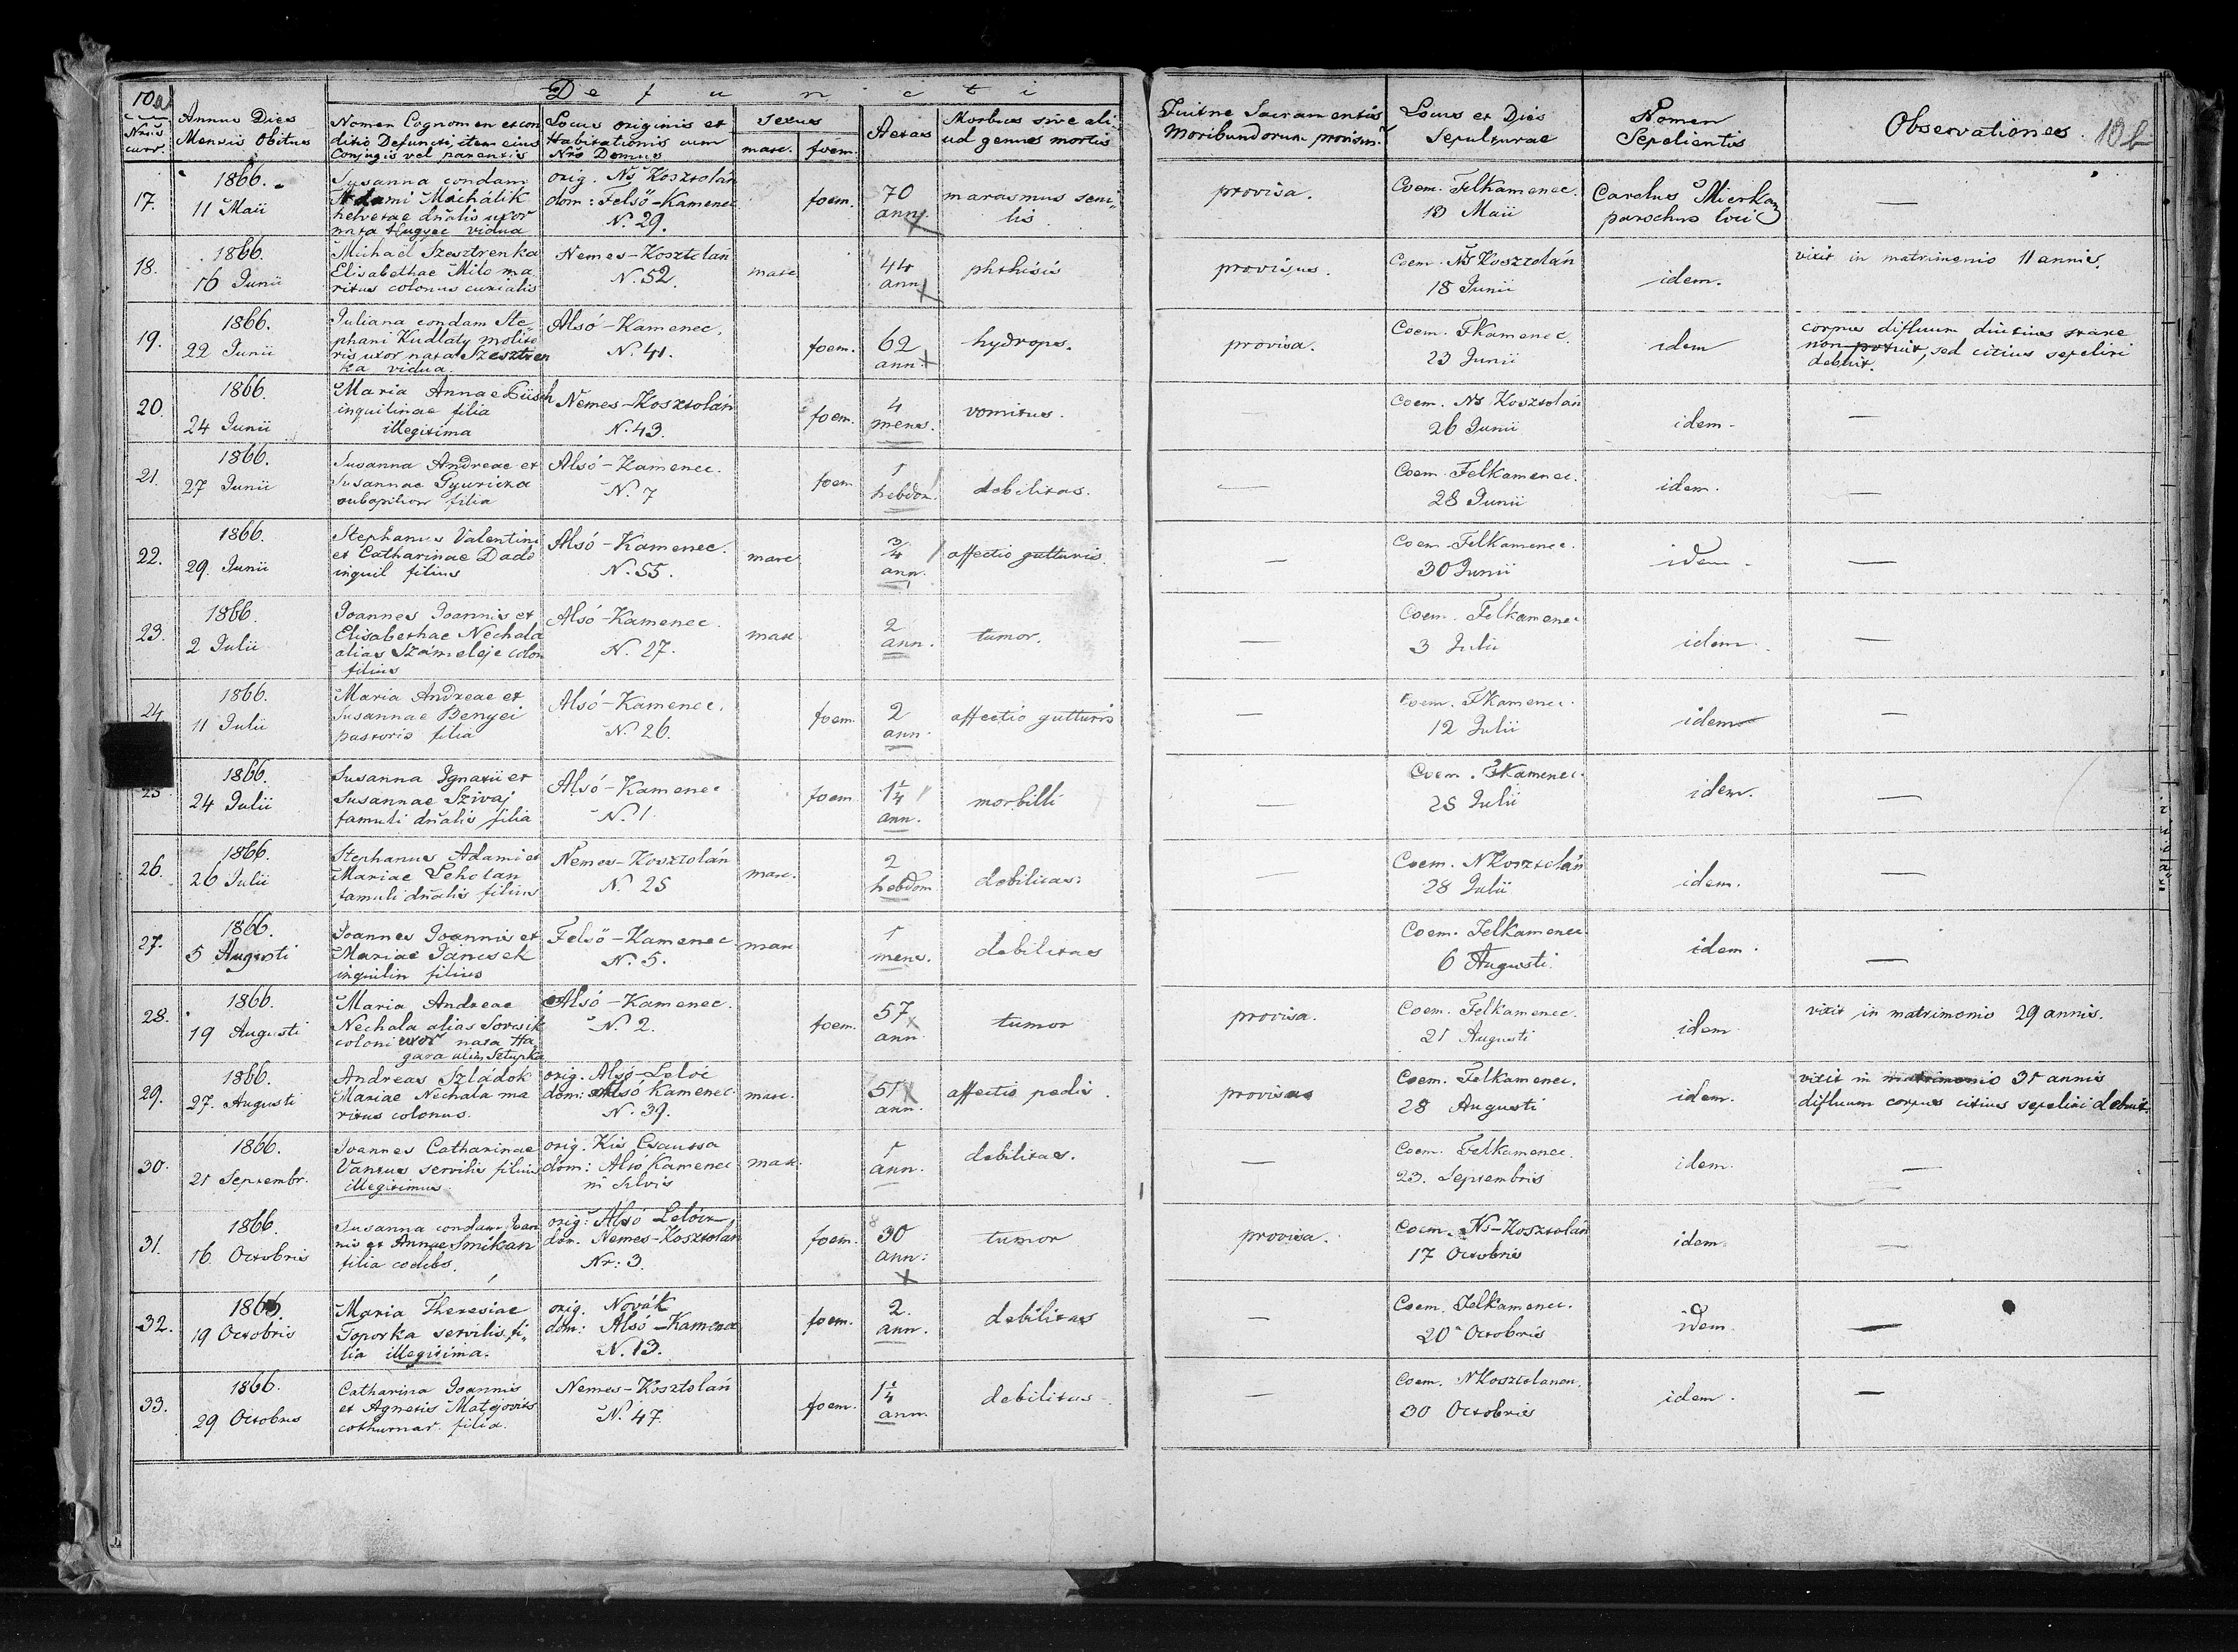 10a
Defuncti
Nrus curr.
Annus Dies
Mensis Obitus
Nomen Cognomen et con
ditio Defuncti, item eius
Conjugis vel parentis
Locus originis et
Habitationis cum
Nro Domus
Sexus
masc. foem.
Aetas
Morbus sive ali
ud genus mortis
Fuitne Sacramentis
Moribundorum provisus?
Locus et Dies
Sepulturae
Nomen
Sepelientis
Observationes 10b
17.
1866.
11 Maii
Susanna condam
Adami Machalik
nata vidua
orig. Ns Kosztolán
dom: Felsö-Kamenec
N. 29.
foem.
70
ann.
marasmus seni„
lis
provisa.
Coem. Felkamenec.
13 Maii
Carolus
parochus loci
—
18.
1866.
16 Junii
Michael Szesztrenka
Elisabethae Milo ma
ritus colonus curialis
Nemes-Kosztolán
N. 52.
masc
44
ann
phthisis
provisus.
Coem. Ns Kosztolán
18 Junii
idem.
vixit in matrimonio 11 annis.
19.
1866.
22 Junii
Juliana condam Ste„
phani Kudlaty molito
ris uxor nata Szesztren
ka vidua.
Alsó-Kamenec.
N. 41.
foem.
62
ann.
hydrops.
provisa.
Coem. FKamenec.
23 Junii
idem
corpus difluum diutius stare
non potuit, sed citius sepeliri
debuit.
20.
1866.
24 Junii
Maria Annae
inquilinae filia
illegitima
Nemes-Kosztolán
N. 43.
foem.
4
mens.
vomitus.
Coem. Ns Kosztolán
26 Junii
idem-
—
21.
1866.
27 Junii
Susanna Andreae et
Susannae Gyuricza
filia
Alsó-Kamenec.
N. 7
foem
1
hebdom.
debilitas.
—
Coem. Felkamenec.
28 Junii
idem.
—
22.
1866.
29. Junii
Stephanus Valentini
et Catharinae Dado
inquil filius
Alsó-Kamenec.
N. 55.
masc
3/4
ann.
affectio gutturis.
—
Coem. Felkamenec.
30 Junii
idem.
—
23.
1866.
2 Julii
Joannes Joannis et
Elisabethae Nechala
alias Számeleje colon
filius
Alsó-Kamenec.
N. 27.
masc.
2
ann.
tumor.
—
Coem. Felkamenec
3 Julii
idem.
—
24
1866.
11 Julii
Maria Andreae et
Susannae Benyei
pastoris filia
Alsó-Kamenec.
N. 26.
foem.
2
ann.
affectio gutturis
—
Coem. FKamenec.
12 Julii
idem
—
25
1866.
24 Julii
Susanna Ignatii et
Susannae Szivaj
famuli dnalis filia
Alsó-Kamenec
N. 1
foem
1 1/4
ann.
morbilli
—
Coem. FKamenec.
25 Julii
idem.
—
26.
1866.
26 Julii
Stephanus Adami et
Mariae Lehotan
famuli dnalis filius
Nemes-Kosztolán
N. 25
masc.
2
hebdom.
debilitas.
—
Coem. NKosztolán
28 Julii
idem.
—
27.
1866.
5 Augusti
Joannes Joannis et
Mariae Jancsek
inquilin filius
Felsö-Kamenec
N. 5.
masc.
1
mens.
debilitas
Coem. Felkamenec.
6 Augusti.
idem.
—
28.
1866.
19 Augusti
Maria Andreae
Nechala alias
coloni uxor nata Ha
gara alias
Alsó-Kamenec.
N. 2.
foem.
57
ann
tumor
provisa.
Coem. Felkamenec.
21 Augusti
idem
vixit in matrimonio 29 annis.
29.
1866.
27. Augusti
Andreas Szládok
Mariae Nechala ma
ritus colonus.
orig. Alsó-Lelóc
dom: Alsó Kamenec
N. 39.
masc.
51
ann.
affectio pedis.
provisus
Coem. Felkamenec.
28 Augusti
idem.
vixit in matrimonio 31 annis
difluum corpus citius sepeliri debuit.
30.
1866.
21 Septembr.
Joannes Catharinae
Vantus servilis filius
illegitimus.
orig. Kis Csausa
dom: Alsó Kamenec
in silvis
masc.
1
ann.
debilitas.
—
Coem. Felkamenec.
23. Septembris
idem.
—
31.
1866.
16. Octobris
Susanna condam Joan
nis et Annae Smikan
filia coelebs.
orig: Alsó Lelócz
dom. Nemes-Kosztolán
Nr: 3.
foem.
30
ann:
tumor
provisa.
Coem. Ns-Kosztolán
17 Octobris
idem.
—
32.
1866.
19 Octobris
Maria Theresiae
Toporka servilis fi„
lia illegitima.
orig. Novák
dom: Alsó-Kamenec
N. 13.
foem.
2.
ann.
debilitas
—
Coem. Felkamenec.
20 Octobris
idem
—
33.
1866.
29 Octobris
Catharina Joannis
et Agnetis Matejovits
cothurnar. filia.
Nemes-Kosztolán
N. 47.
foem.
1 1/4
ann.
debilitas
—
Coem. NKosztolanen.
30 Octobris
idem.
—